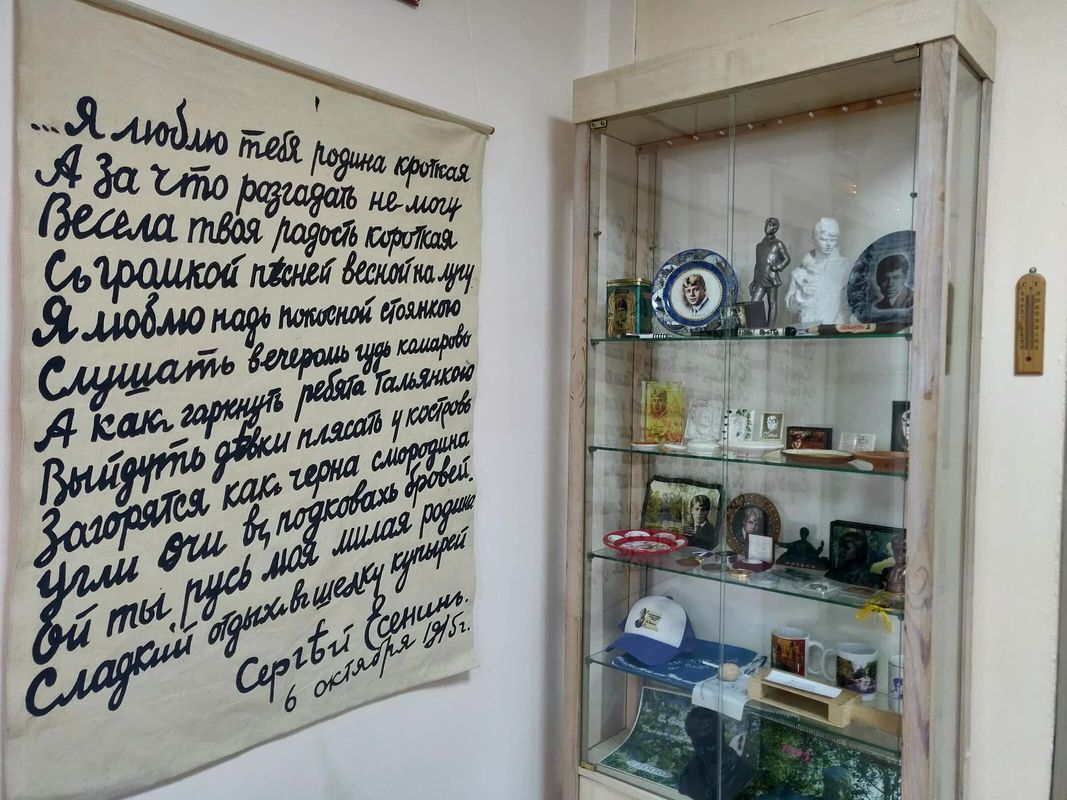 ...Я люблю тебя родина кроткая
А за что разгадать не могу
Весела твоя радость короткая
Съ громкой пѣсней весной на лугу
Я люблю надъ покосной стоянкою
Слушать вечеромъ гудъ комаровъ
А какъ гаркнутъ ребята тальянкою
Выйдутъ дѣвки плясать у костровъ
Загорятся какъ черна смородина
Угли очи въ подковахъ бровей.
Ой ты, русь моя милая родина
Сладкий отдыхъ въ шелку купырей
Сергѣй Есенинъ.
6 октября 1915г.